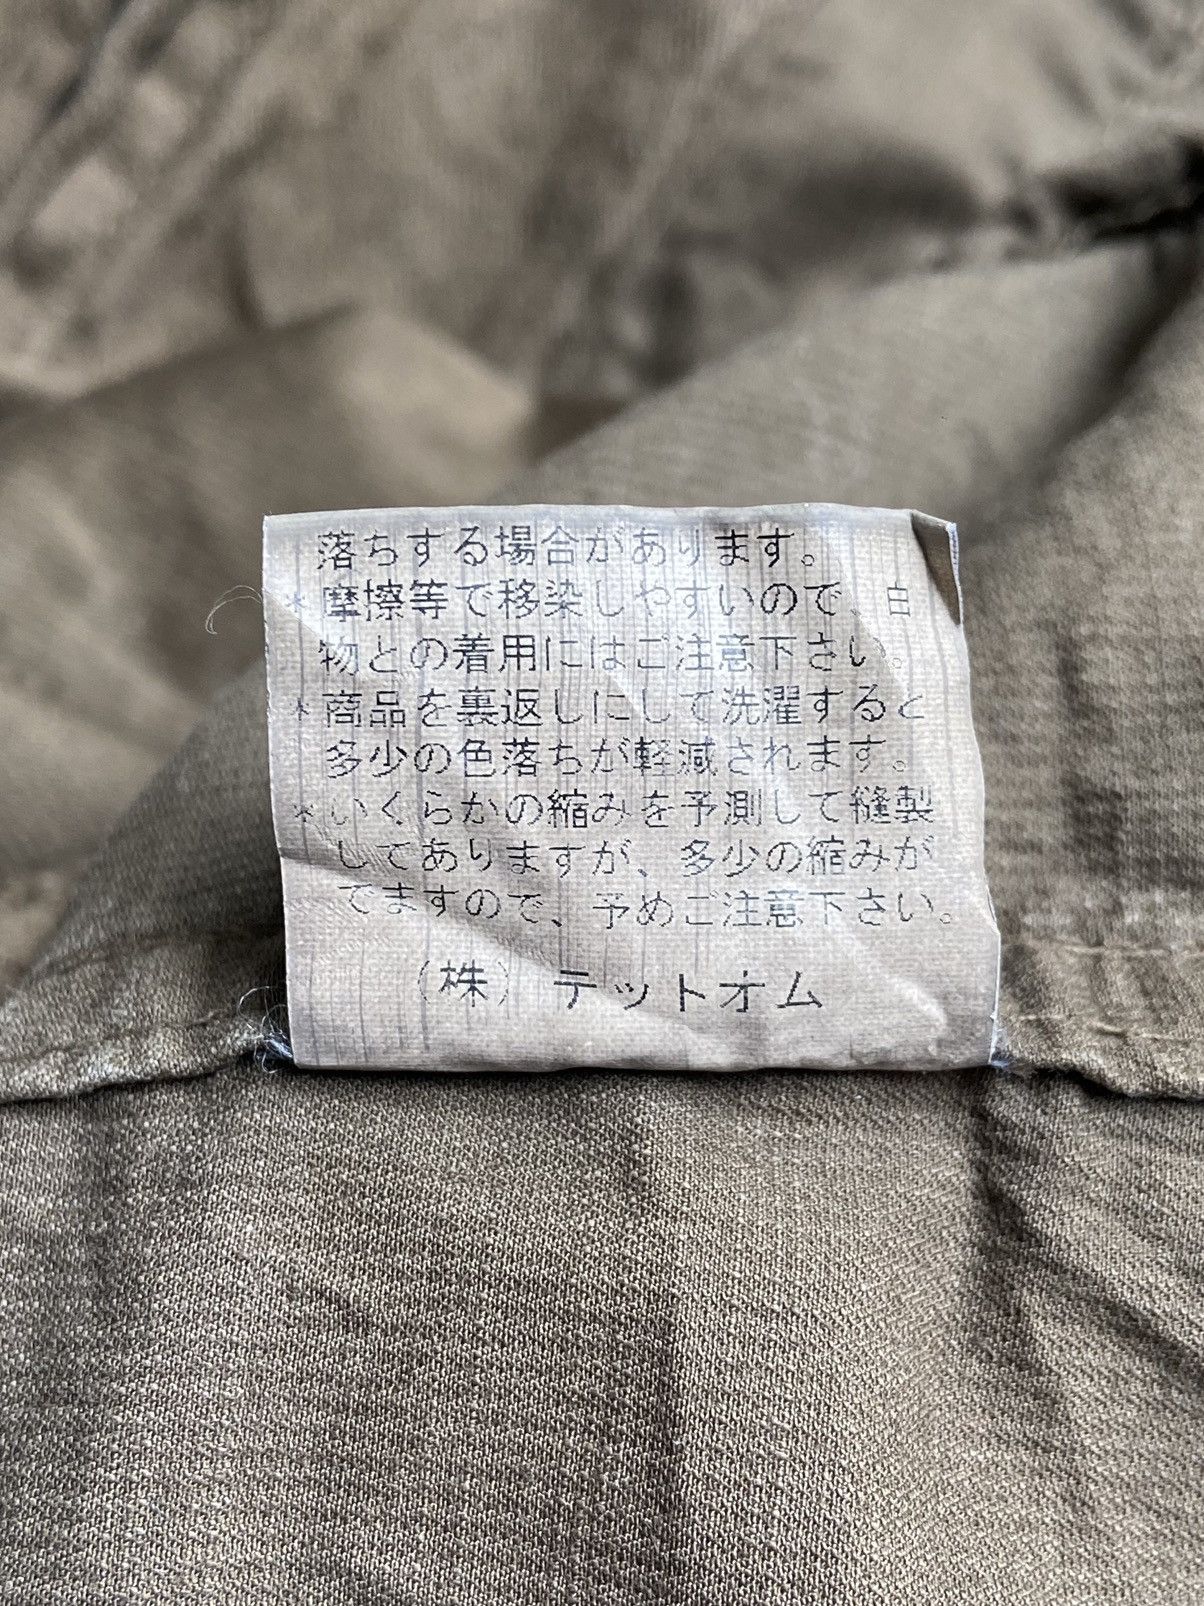 落ちする場合があります。
*摩擦等で移染しやすいので、白
物との着用にはご注意下さい。
*商品を裏返しにして洗濯すると
多少の色落ちが軽減されます。
*いくらかの縮みを予測して縫製
してありますが、多少の縮みが
でますので、予めご注意下さい。
(株) テットオム